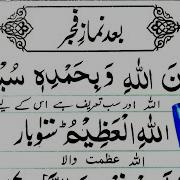 بعد نمازِ فجر
نَ اللّٰهِ وَبِحَمْدِهٖ سُبْ
اللہ اور سب تعریف ہے اس کے لیے
اللّٰهِ الْعَظِيْمِ سَوْبار
اللہ عظمت والا